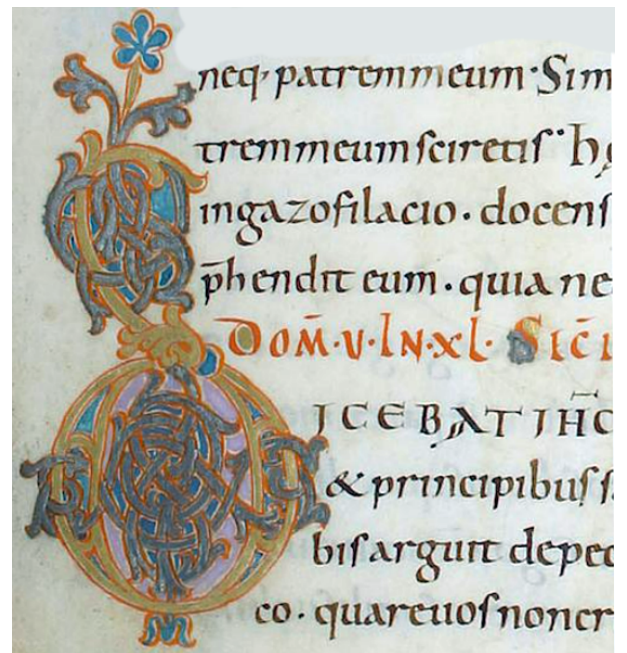 neq; patrem meum · Sim
trem meum sciretis · h
in gazofilacio · docens
p̄hendit eum · quia ne
DOM̄·V·IN·XL· SIC̄I
DICEBAT IHC̄
& principibus s
bis arguit de pec
co · quare uos non cr